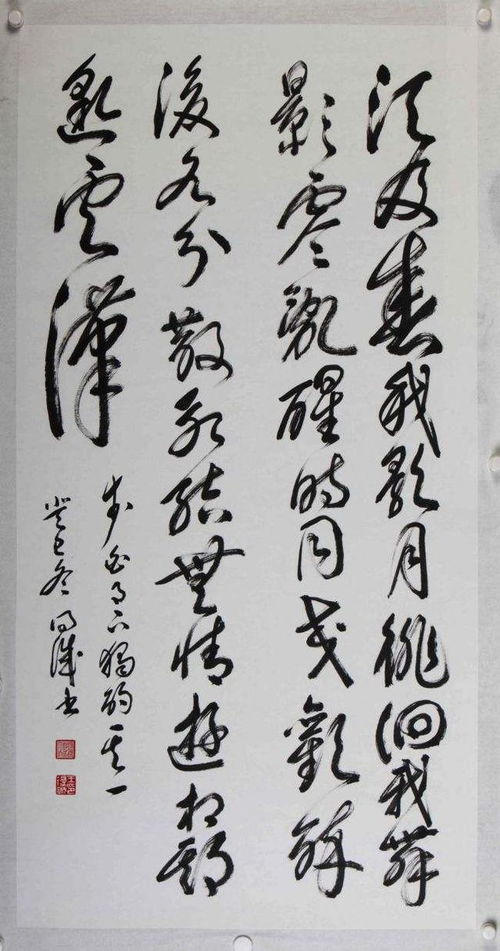 須及春我歌月徘徊我舞
影零亂醒時同交歡醉
後各分散永結無情遊相期
邈雲漢
李白月下獨酌其一
癸巳冬書